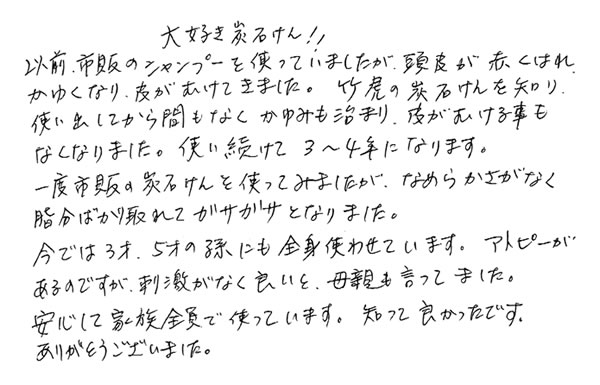 大好き炭石けん!!
以前、市販のシャンプーを使っていましたが、頭皮が赤くはれ、
かゆくなり、皮がむけてきました。竹虎の炭石けんを知り、
使い出してから間もなくかゆみも治まり、皮がむける事も
なくなりました。使い続けて3〜4年になります。
一度市販の炭石けんを使ってみましたが、なめらかさがなく
脂分ばかり取れてガサガサとなりました。
今では3才、5才の孫にも全身使わせています。アトピーが
あるのですが、刺激がなく良いと、母親も言ってました。
安心して家族全員で使っています。知って良かったです。
ありがとうございました。